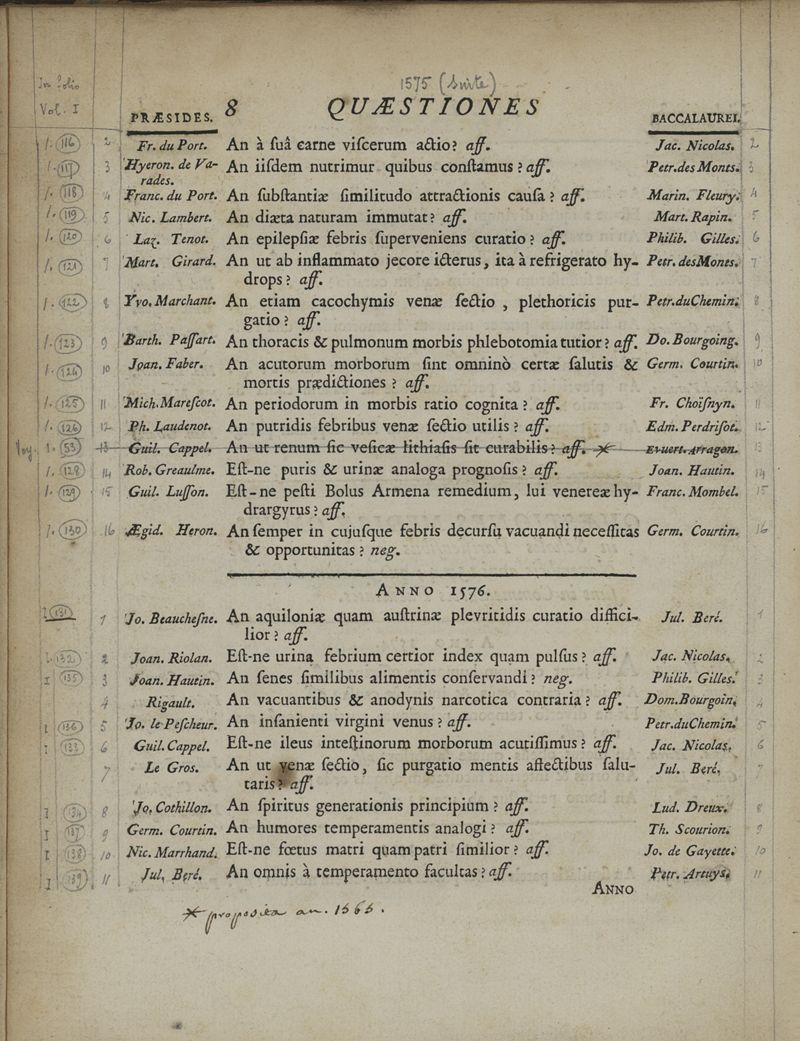 1575 (Suite)
In folio
Vol. I
PRÆSIDES. 8 QUÆSTIONES BACCALAUREI.
1. (116) 2 Fr. du Port. An à ſuâ carne viſcerum actio? aff. Jac. Nicolas. 2
1. (117) 3 Hyeron. de Va- An iiſdem nutrimur quibus conſtamus? aff. Petr. des Monts. 3
rades.
1. (118) 4 Franc. du Port. An ſubſtantiæ ſimilitudo attractionis cauſa? aff. Marin. Fleury. 4
1. (119) 5 Nic. Lambert. An diæta naturam immutat? aff. Mart. Rapin. 5
1. (120) 6 Laz. Tenot. An epilepſiæ febris ſuperveniens curatio? aff. Philib. Gilles. 6
1. (121) 7 Mart. Girard. An ut ab inflammato jecore icterus, ita à refrigerato hy- Petr. des Monts. 7
drops? aff.
1. (122) 8 Yvo. Marchant. An etiam cacochymis venæ ſectio, plethoricis pur- Petr. du Chemin. 8
gatio? aff.
1. (123) 9 Barth. Paſſart. An thoracis & pulmonum morbis phlebotomia tutior? aff. Do. Bourgoing. 9
1. (124) 10 Joan. Faber. An acutorum morborum ſint omninò certæ ſalutis & Germ. Courtin. 10
mortis prædictiones? aff.
1. (125) 11 Mich. Mareſcot. An periodorum in morbis ratio cognita? aff. Fr. Choiſnyn. 11
1. (126) 12 Ph. Laudenot. An putridis febribus venæ ſectio utilis? aff. Edm. Perdriſot. 12
Voy. 1. (53) 13 Guil. Cappel. An ut renum ſic veſicæ lithiaſis ſit curabilis? aff. Evuert. Arragon. 13
1. (128) 14 Rob. Greaulme. Eſt-ne puris & urinæ analoga prognoſis? aff. Joan. Hautin. 14
1. (129) 15 Guil. Luſſon. Eſt-ne peſti Bolus Armena remedium, lui venereæ hy- Franc. Mombel. 15
drargyrus? aff.
1. (130) 16 Ægid. Heron. An ſemper in cujuſque febris decurſu vacuandi neceſſitas Germ. Courtin. 16
& opportunitas? neg.
ANNO 1576.
1 (131) 1 Jo. Beaucheſne. An aquiloniæ quam auſtrinæ plevritidis curatio diffici- Jul. Beré. 1
lior? aff.
1 (132) 2 Joan. Riolan. Eſt-ne urina febrium certior index quam pulſus? aff. Jac. Nicolas. 2
1 (135) 3 Joan. Hautin. An ſenes ſimilibus alimentis conſervandi? neg. Philib. Gilles. 3
4 Rigault. An vacuantibus & anodynis narcotica contraria? aff. Dom. Bourgoin. 4
1 (136) 5 Jo. le Peſcheur. An inſanienti virgini venus? aff. Petr. du Chemin. 5
1 (133) 6 Guil. Cappel. Eſt-ne ileus inteſtinorum morborum acutiſſimus? aff. Jac. Nicolas. 6
7 Le Gros. An ut venæ ſectio, ſic purgatio mentis affectibus ſalu- Jul. Beré. 7
taris? aff.
1 (134) 8 Jo. Cothillon. An ſpiritus generationis principium? aff. Lud. Dreux. 8
1 (137) 9 Germ. Courtin. An humores temperamentis analogi? aff. Th. Scourion. 9
1 (138) 10 Nic. Marrhand. Eſt-ne fœtus matri quam patri ſimilior? aff. Jo. de Gayette. 10
1 (139) 11 Jul. Beré. An omnis à temperamento facultas? aff. Petr. Artuys. 11
ANNO
proposita an. 1566.